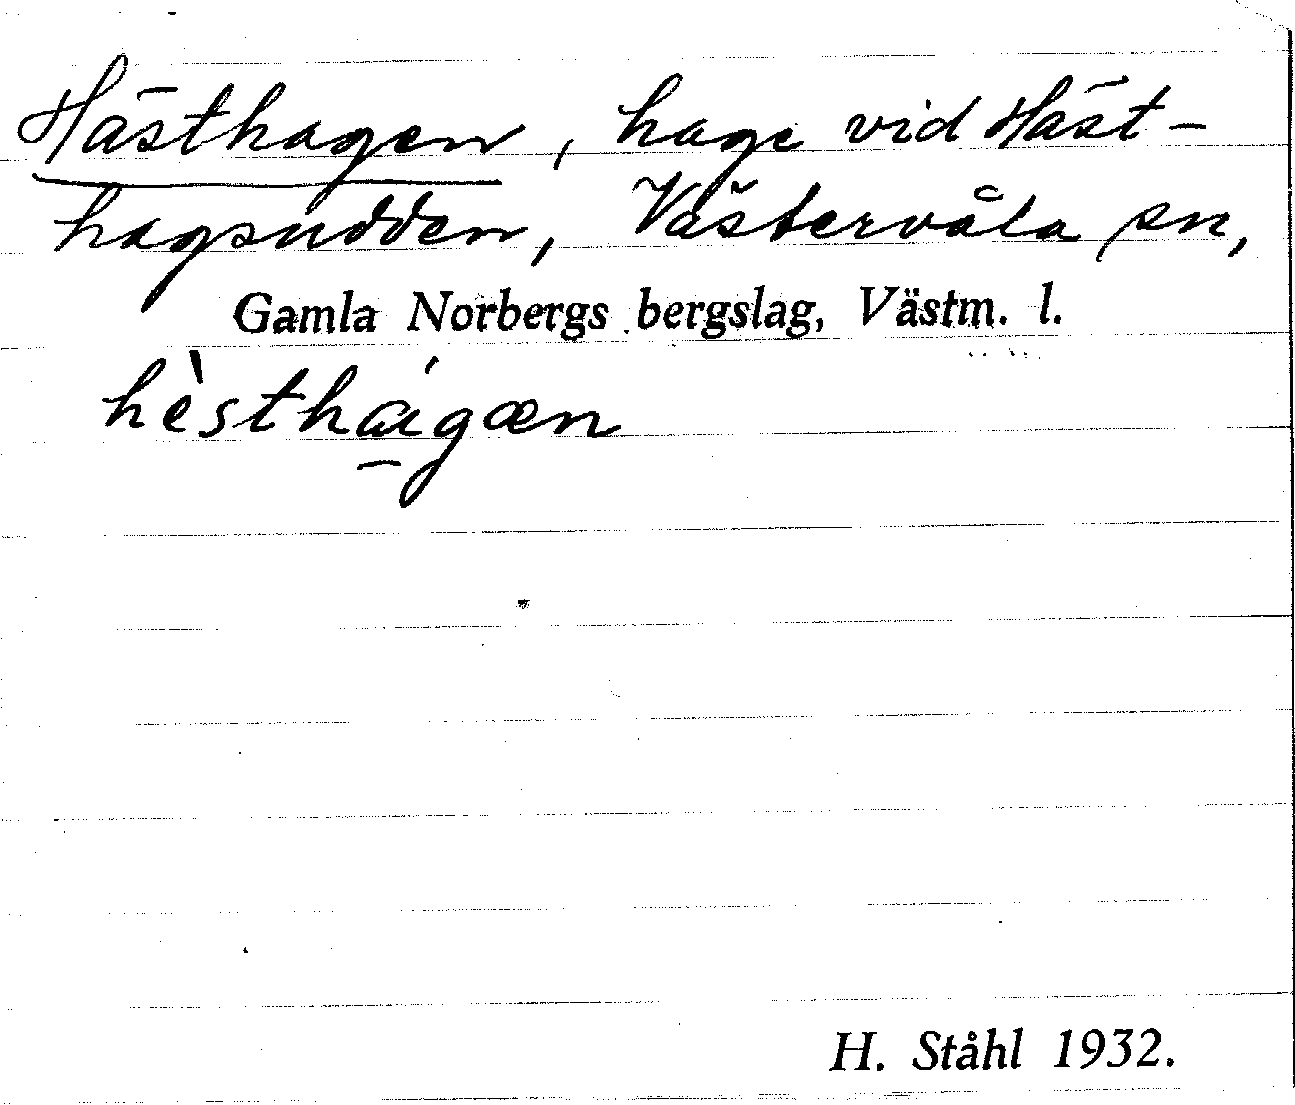 Hästhagen, hage vid Häst-
hagsudden, Västervåla sn,
Gamla Norbergs bergslag, Västm. l.
hèsthágæn
H. Ståhl 1932.